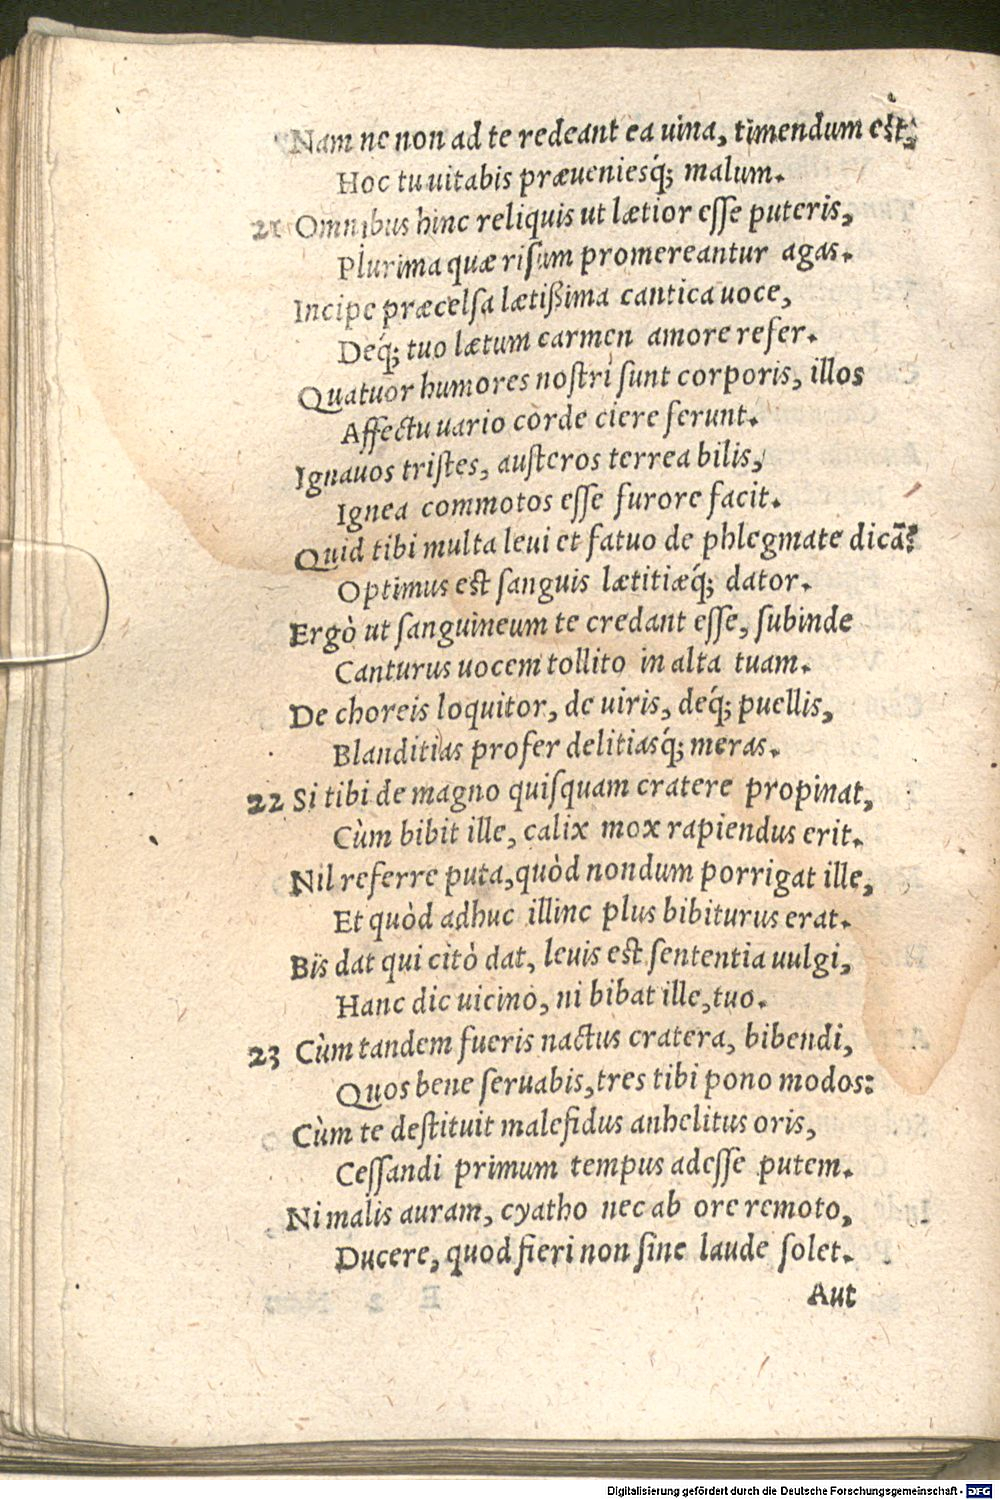 Nam ne non ad te redeant ea uina, timendum est,
Hoc tu uitabis præueniesq́; malum.
21 Omnibus hinc reliquis ut lætior esse puteris,
Plurima quæ risum promereantur agas.
Incipe præcelsa lætißima cantica uoce,
Deq́; tuo lætum carmen amore refer.
Quatuor humores nostri sunt corporis, illos
Affectu uario corde ciere ferunt.
Ignauos tristes, austeros terrea bilis,
Ignea commotos esse furore facit.
Quid tibi multa leui et fatuo de phlegmate dicā?
Optimus est sanguis lætitiæq́; dator.
Ergò ut sanguineum te credant esse, subinde
Canturus uocem tollito in alta tuam.
De choreis loquitor, de uiris, deq́; puellis,
Blanditias profer delitiasq́; meras.
22 Si tibi de magno quisquam cratere propinat,
Cùm bibit ille, calix mox rapiendus erit.
Nil referre puta, quòd nondum porrigat ille,
Et quòd adhuc illinc plus bibiturus erat.
Bis dat qui citò dat, leuis est sententia uulgi,
Hanc dic uicino, ni bibat ille, tuo.
23 Cùm tandem fueris nactus cratera, bibendi,
Quos bene seruabis, tres tibi pono modos:
Cùm te destituit malefidus anhelitus oris,
Cessandi primum tempus adesse putem.
Ni malis auram, cyatho nec ab ore remoto,
Ducere, quod fieri non sine laude solet.
Aut
Digitalisierung gefördert durch die Deutsche Forschungsgemeinschaft - DFG